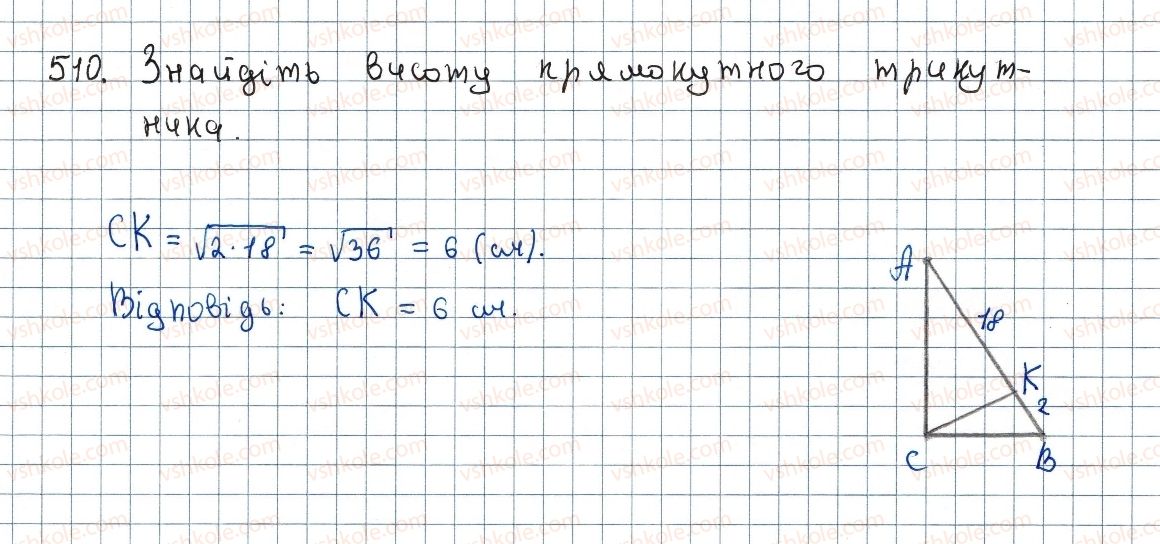 510. Знайдіть висоту прямокутного трикут-
ника.
CK = √2·18 = √36 = 6 (см).
Відповідь: CK = 6 см.
A
18
K
2
C
B
vshkole.com